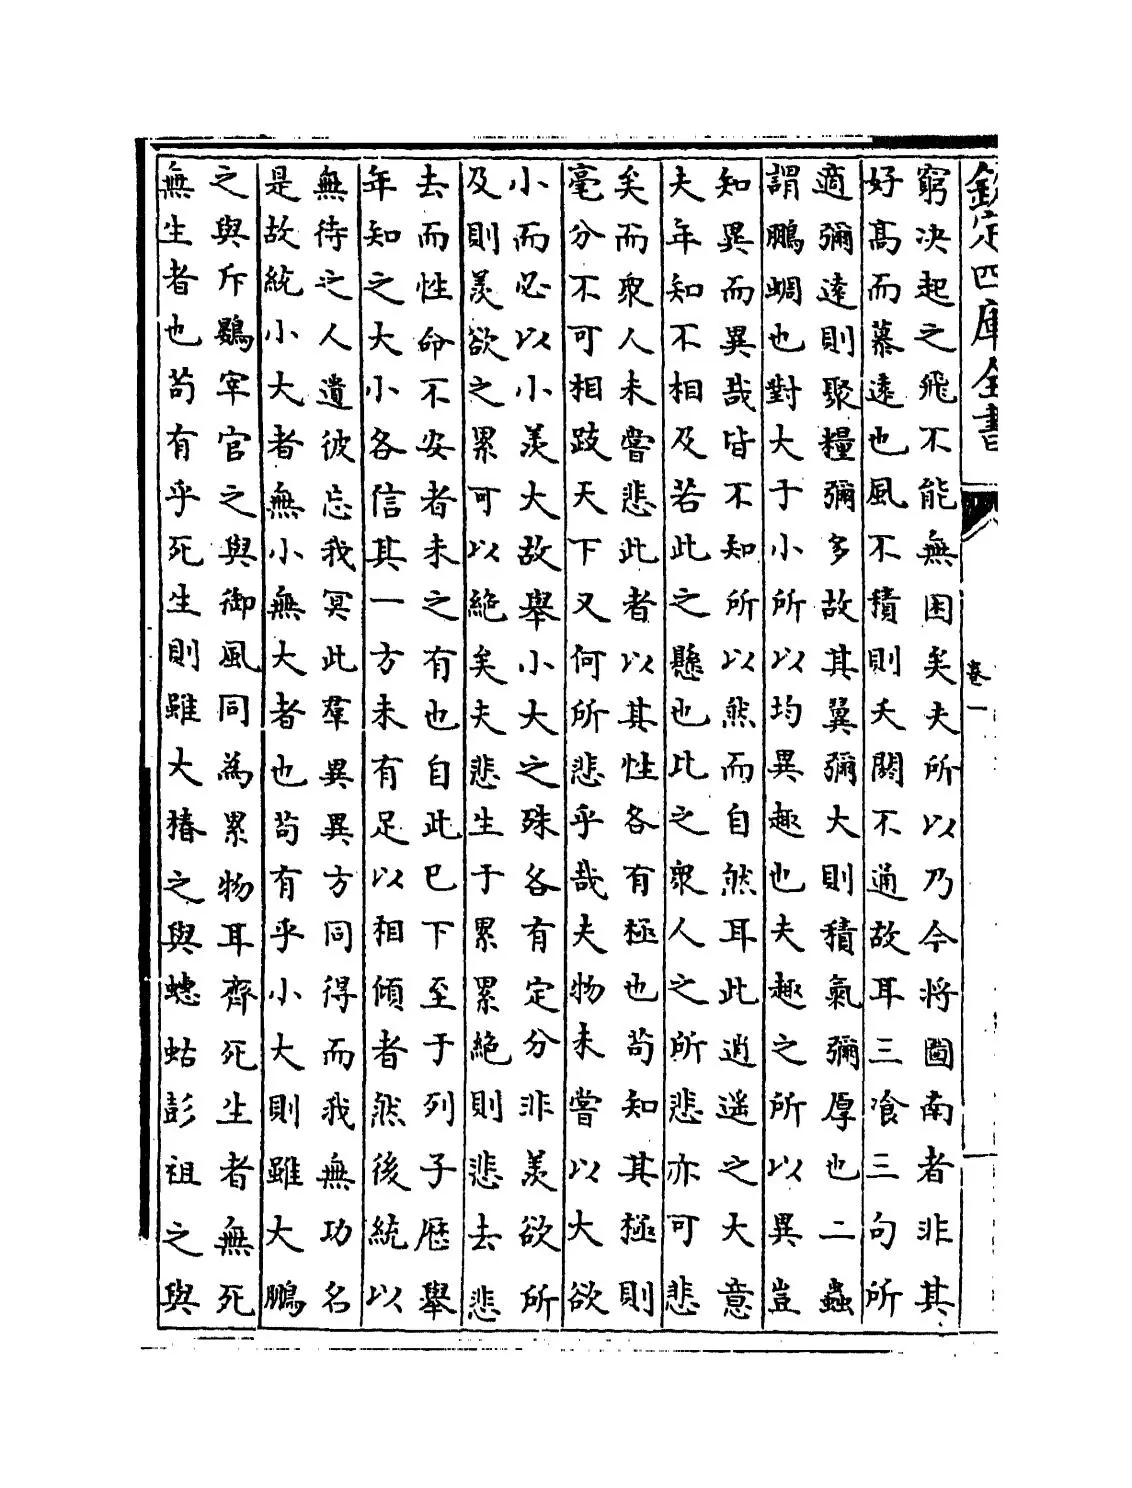 欽定四庫全書
卷一
窮决起之飛不能無困矣夫所以乃今將圖南者非其
好髙而慕遠也風不積則夭閼不通故耳三飡三句所
適彌遠則聚糧彌多故其翼彌大則積氣彌厚也二蟲
謂鵬蜩也對大于小所以均異趣也夫趣之所以異豈
知異而異哉皆不知所以然而自然耳此逍遥之大意
夫年知不相及若此之懸也比之衆人之所悲亦可悲
矣而衆人未嘗悲此者以其性各有極也苟知其極則
毫分不可相跂天下又何所悲乎哉夫物未嘗以大欲
小而必以小羨大故舉小大之殊各有定分非羨欲所
及則羨欲之累可以絶矣夫悲生于累累絶則悲去悲
去而性命不安者未之有也自此已下至于列子歴舉
年知之大小各信其一方未有足以相傾者然後統以
無待之人遺彼忘我冥此羣異異方同得而我無功名
是故統小大者無小無大者也苟有乎小大則雖大鵬
之與斥鷃宰官之與御風同為累物耳齊死生者無死
無生者也苟有乎死生則雖大椿之與蟪蛄彭祖之與